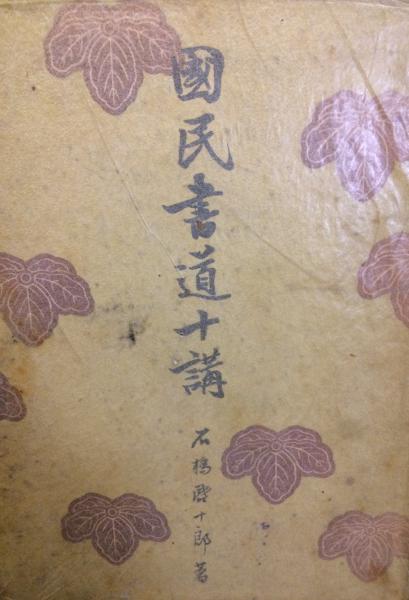 國民書道十講
石橋啓十郎著